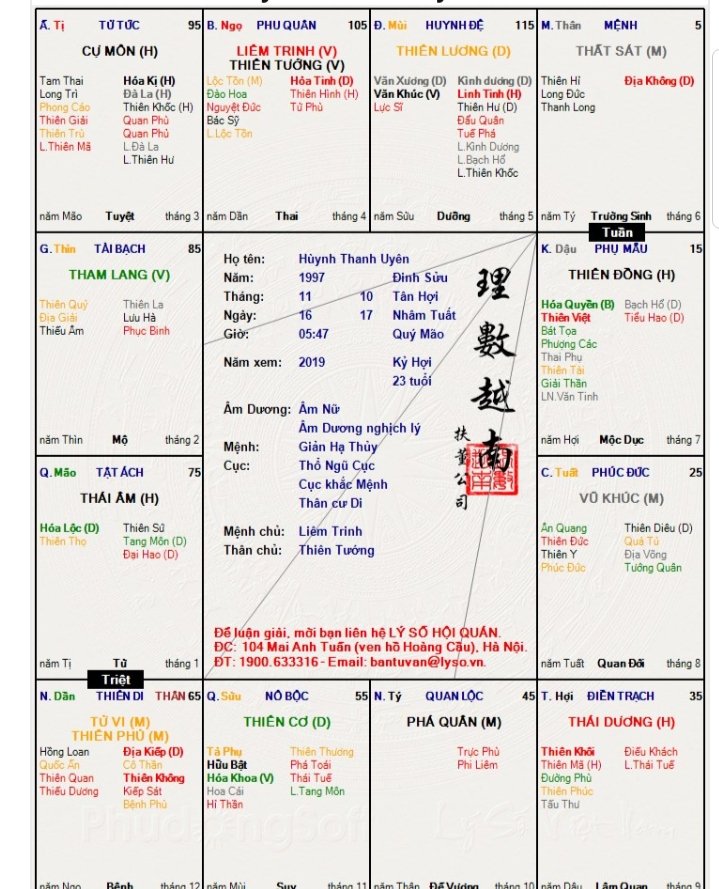 Ă. Tị TỬ TỨC 95
CỰ MÔN (H)
Tam Thai Hóa Kị (H)
Long Trì Đà La (H)
Phong Cáo Thiên Khốc (H)
Thiên Giải Quan Phù
Thiên Trù Quan Phủ
L.Thiên Mã L.Đà La
L.Thiên Hư
năm Mão Tuyệt tháng 3
B. Ngọ PHU QUÂN 105
LIÊM TRINH (V)
THIÊN TƯỚNG (V)
Lộc Tồn (M) Hỏa Tinh (D)
Đào Hoa Thiên Hình (H)
Nguyệt Đức Tử Phù
Bác Sỹ
L.Lộc Tồn
năm Dần Thai tháng 4
Đ. Mùi HUYNH ĐỆ 115
THIÊN LƯƠNG (D)
Văn Xương (D) Kình dương (D)
Văn Khúc (V) Linh Tinh (H)
Lực Sĩ Thiên Hư (D)
Đẩu Quân
Tuế Phá
L.Kình Dương
L.Bạch Hổ
L.Thiên Khốc
năm Sửu Dưỡng tháng 5
M. Thân MỆNH 5
THẤT SÁT (M)
Thiên Hỉ Địa Không (D)
Long Đức
Thanh Long
năm Tý Trường Sinh tháng 6
Tuần
G. Thìn TÀI BẠCH 85
THAM LANG (V)
Thiên Quý Thiên La
Địa Giải Lưu Hà
Thiếu Âm Phục Binh
năm Thìn Mộ tháng 2
Họ tên: Hùynh Thanh Uyên
Năm: 1997 Đinh Sửu
Tháng: 11 10 Tân Hợi
Ngày: 16 17 Nhâm Tuất
Giờ: 05:47 Quý Mão
Năm xem: 2019 Kỷ Hợi
23 tuổi
Âm Dương: Âm Nữ
Âm Dương nghịch lý
Mệnh: Giản Hạ Thủy
Cục: Thổ Ngũ Cục
Cục khắc Mệnh
Thân cư Di
Mệnh chủ: Liêm Trinh
Thân chủ: Thiên Tướng
理數越南
扶董公司
Để luận giải, mời bạn liên hệ LÝ SỐ HỘI QUÁN.
ĐC: 104 Mai Anh Tuấn (ven hồ Hoàng Cầu), Hà Nội.
ĐT: 1900.633316 - Email: bantuvan@lyso.vn.
K. Dậu PHỤ MẪU 15
THIÊN ĐỒNG (H)
Hóa Quyền (B) Bạch Hổ (D)
Thiên Việt Tiểu Hao (D)
Bát Tọa
Phượng Các
Thai Phụ
Thiên Tài
Giải Thần
LN.Văn Tinh
năm Hợi Mộc Dục tháng 7
Q. Mão TẬT ÁCH 75
THÁI ÂM (H)
Hóa Lộc (D) Thiên Sứ
Thiên Thọ Tang Môn (D)
Đại Hao (D)
năm Tị Tử tháng 1
Triệt
C. Tuất PHÚC ĐỨC 25
VŨ KHÚC (M)
Ân Quang Thiên Diêu (D)
Thiên Đức Quả Tú
Thiên Y Địa Võng
Phúc Đức Tướng Quân
năm Tuất Quan Đới tháng 8
N. Dần THIÊN DI THÂN 65
TỬ VI (M)
THIÊN PHỦ (M)
Hồng Loan Địa Kiếp (D)
Quốc Ấn Cô Thần
Thiên Quan Thiên Không
Thiếu Dương Kiếp Sát
Bệnh Phù
năm Ngọ Bệnh tháng 12
Q. Sửu NÔ BỘC 55
THIÊN CƠ (D)
Tả Phụ Thiên Thương
Hữu Bật Phá Toái
Hóa Khoa (V) Thái Tuế
Hoa Cái L.Tang Môn
Hỉ Thần
năm Mùi Suy tháng 11
N. Tý QUAN LỘC 45
PHÁ QUÂN (M)
Trực Phù
Phi Liêm
năm Thân Đế Vượng tháng 10
T. Hợi ĐIỀN TRẠCH 35
THÁI DƯƠNG (H)
Thiên Khôi Điếu Khách
Thiên Mã (H) L.Thái Tuế
Đường Phù
Thiên Phúc
Tấu Thư
năm Dậu Lâm Quan tháng 9